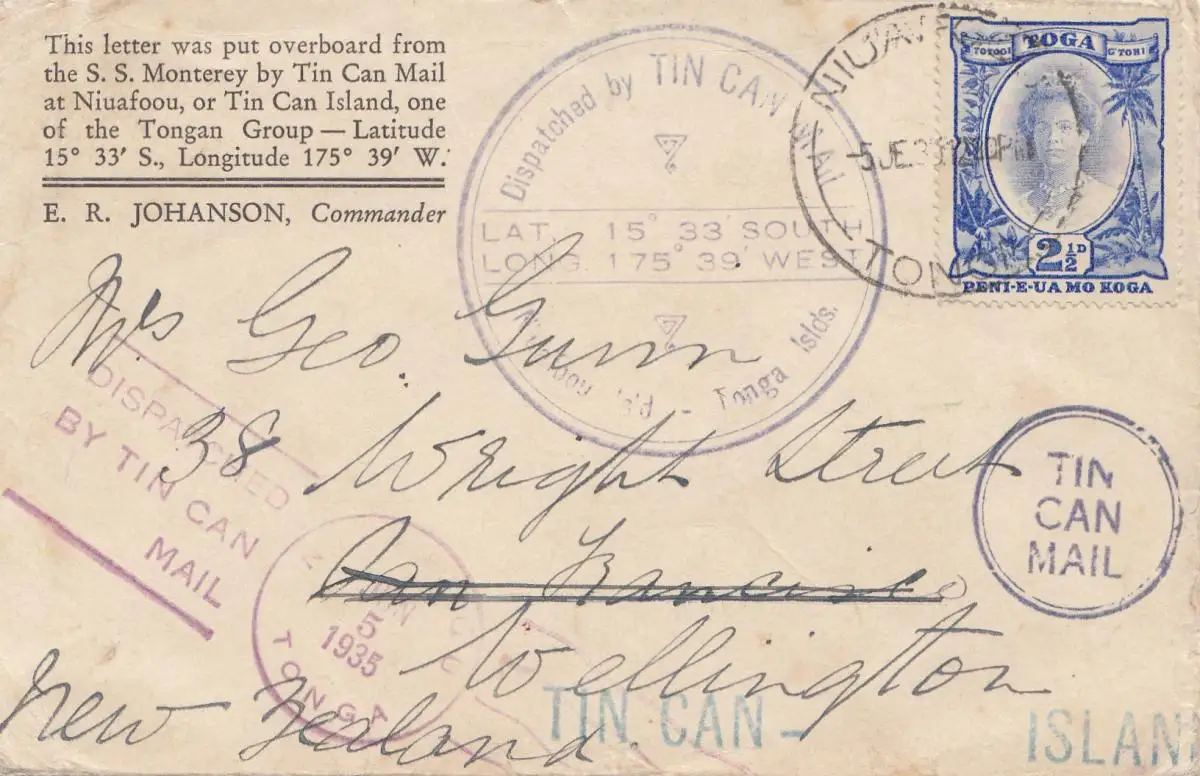 This letter was put overboard from
the S. S. Monterey by Tin Can Mail
at Niuafoou, or Tin Can Island, one
of the Tongan Group — Latitude
15° 33′ S., Longitude 175° 39′ W.
E. R. JOHANSON, Commander
Dispatched by TIN CAN MAIL
LAT. 15° 33' SOUTH
LONG. 175° 39' WEST
Isl'd - Tonga Islds.
5 JE 35
TOTOGI TOGA
2½D
PENI-E-UA MO KOGA
Mrs Geo. Gunn
38 Wright Street
San Francisco
Wellington
New Zealand.
DISPATCHED
BY TIN CAN
MAIL
5
1935
TONGA
TIN
CAN
MAIL
TIN CAN - ISLAN